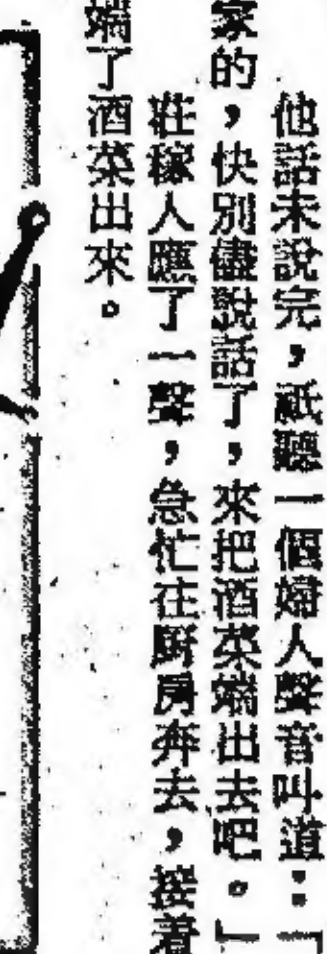 他話未說完，祇聽一個婦人聲音叫道：「
家的，快別儘說話了，來把酒菜端出去吧。」
莊稼人應了一聲，急忙往厨房奔去，接着
端了酒菜出來。